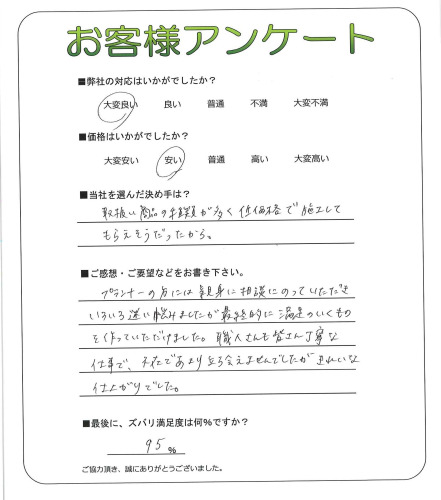 お客様アンケート
■弊社の対応はいかがでしたか？
大変良い 良い 普通 不満 大変不満
■価格はいかがでしたか？
大変安い 安い 普通 高い 大変高い
■当社を選んだ決め手は？
取扱い商品の種類が多く低価格で施工して
もらえそうだったから。
■ご感想・ご要望などをお書き下さい。
プランナーの方には親身に相談にのっていただき
いろいろ迷い悩みましたが最終的に満足のいくもの
を作っていただけました。職人さんも皆さん丁寧な
仕事で、不在であまり立ち会えませんでしたがきれいな
仕上がりでした。
■最後に、ズバリ満足度は何％ですか？
95％
ご協力頂き、誠にありがとうございました。